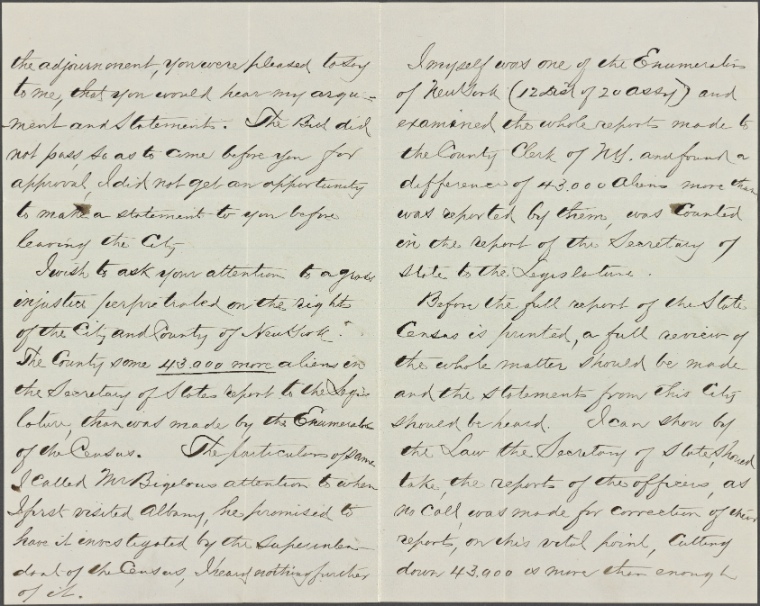 the adjournment, you were pleased to say
to me, that you would hear my argu-
ment and Statements. The Bill did
not pass, so as to come before you for
approval, I did not get an opportunity
to make a statement to you before
leaving the City
I wish to ask your attention to a gross
injustice perpetrated on the rights
of the City and County of New York.
The County some 43.000 more aliens in
the Secretary of States report to the Legis
lature, than was made by the Enumerators
of the Census. The particulars of same
I called Mr Bigelows attention to when
I first visited Albany, he promised to
have it investigated by the Superinten-
dent of the Census, I heard nothing further
of it.
I myself was one of the Enumerators
of New York (12 Dist of 20 Assy) and
examined the whole reports made to
the County Clerk of NY. and found a
difference of 43.000 Aliens more than
was reported by them, was Counted
in the report of the Secretary of
State to the Legislature.
Before the full report of the State
Census is printed, a full review of
the whole matter should be made
and the statements from this City
should be heard. I can show by
the Law the Secretary of State, should
take, the reports of the officers, as
no Call, was made for correction of their
reports, on this vital point, Cutting
down 43.000 is more than enough